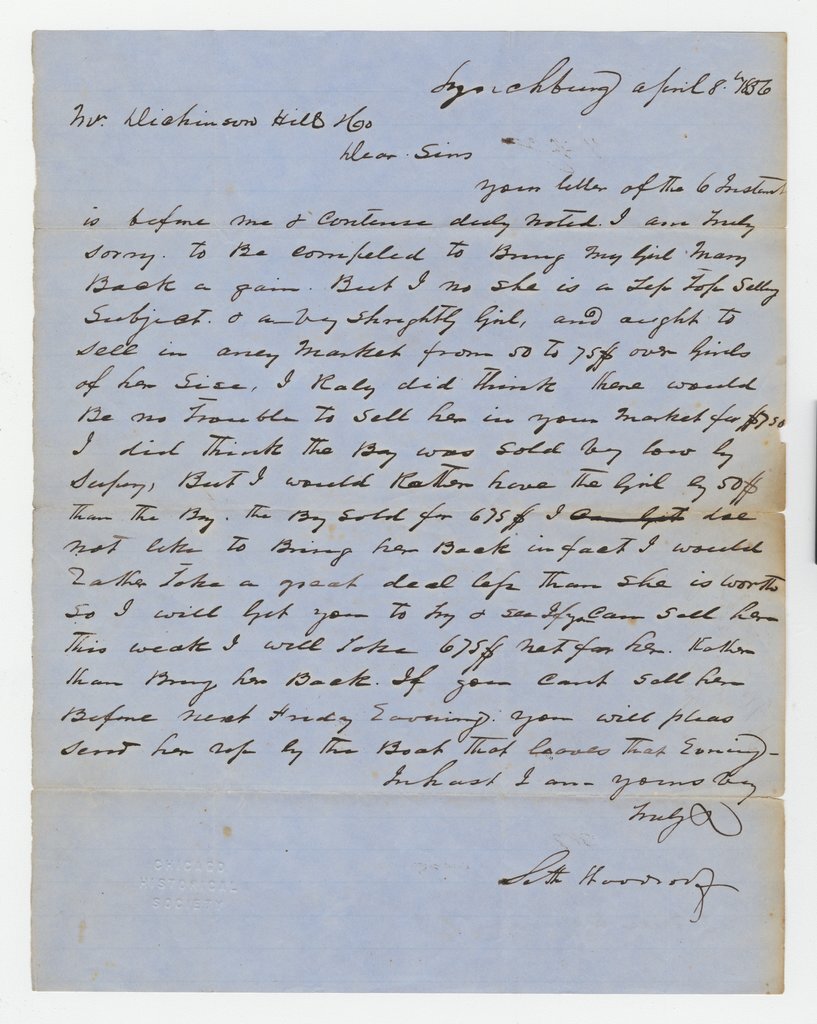 Lynchburg april 8th 1856
Mr. Dickinson Hill & Co
Dear Sirs
your letter of the 6 Instant
is before me & contense duly noted. I am truly
sorry. to Be compeled to Bring My Girl Mary
Back a gain. But I no she is a Top Selling
Subject. & a very Sprightly Girl, and aught to
sell in aney Market from 50 to 75$ over Girls
of her Sise, I Raly did think there would
Be no Trouble to Sell her in your Market for $750
I did think the Boy was Sold very low by
But I would Rather have the Girl by 50$
than the Boy. the Boy Sold for 675$ I doe
not like to Bring her Back in fact I would
Rather Take a great deal less than she is worth
So I will Get you to try & see If you Can Sell her
This weak I will Take 675$ net for her. Rather
than Bring her Back. If you Cant Sell her
Before next Friday Eavening. you will pleas
Send her up by the Boat that leaves that Evening -
In hast I am - yours very
Truly
Seth Woodroof
CHICAGO
HISTORICAL
SOCIETY